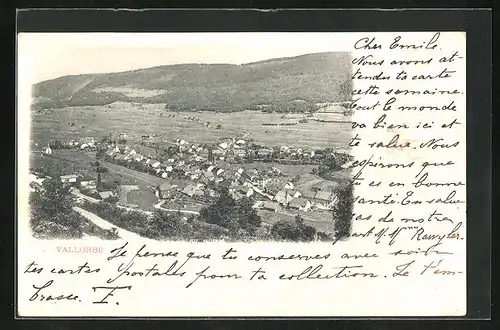 Cher Emile,
Nous avons at-
tendu ta carte
cette semaine.
Tout le monde
va bien ici et
te salue. Nous
espérons que
tu es en bonne
santé. En salue
as de notre
part Mr Mme Rawyler.
VALLORBE
Je pense que tu conserves avec soin
tes cartes postales pour ta collection. Je t'em-
brasse. F.